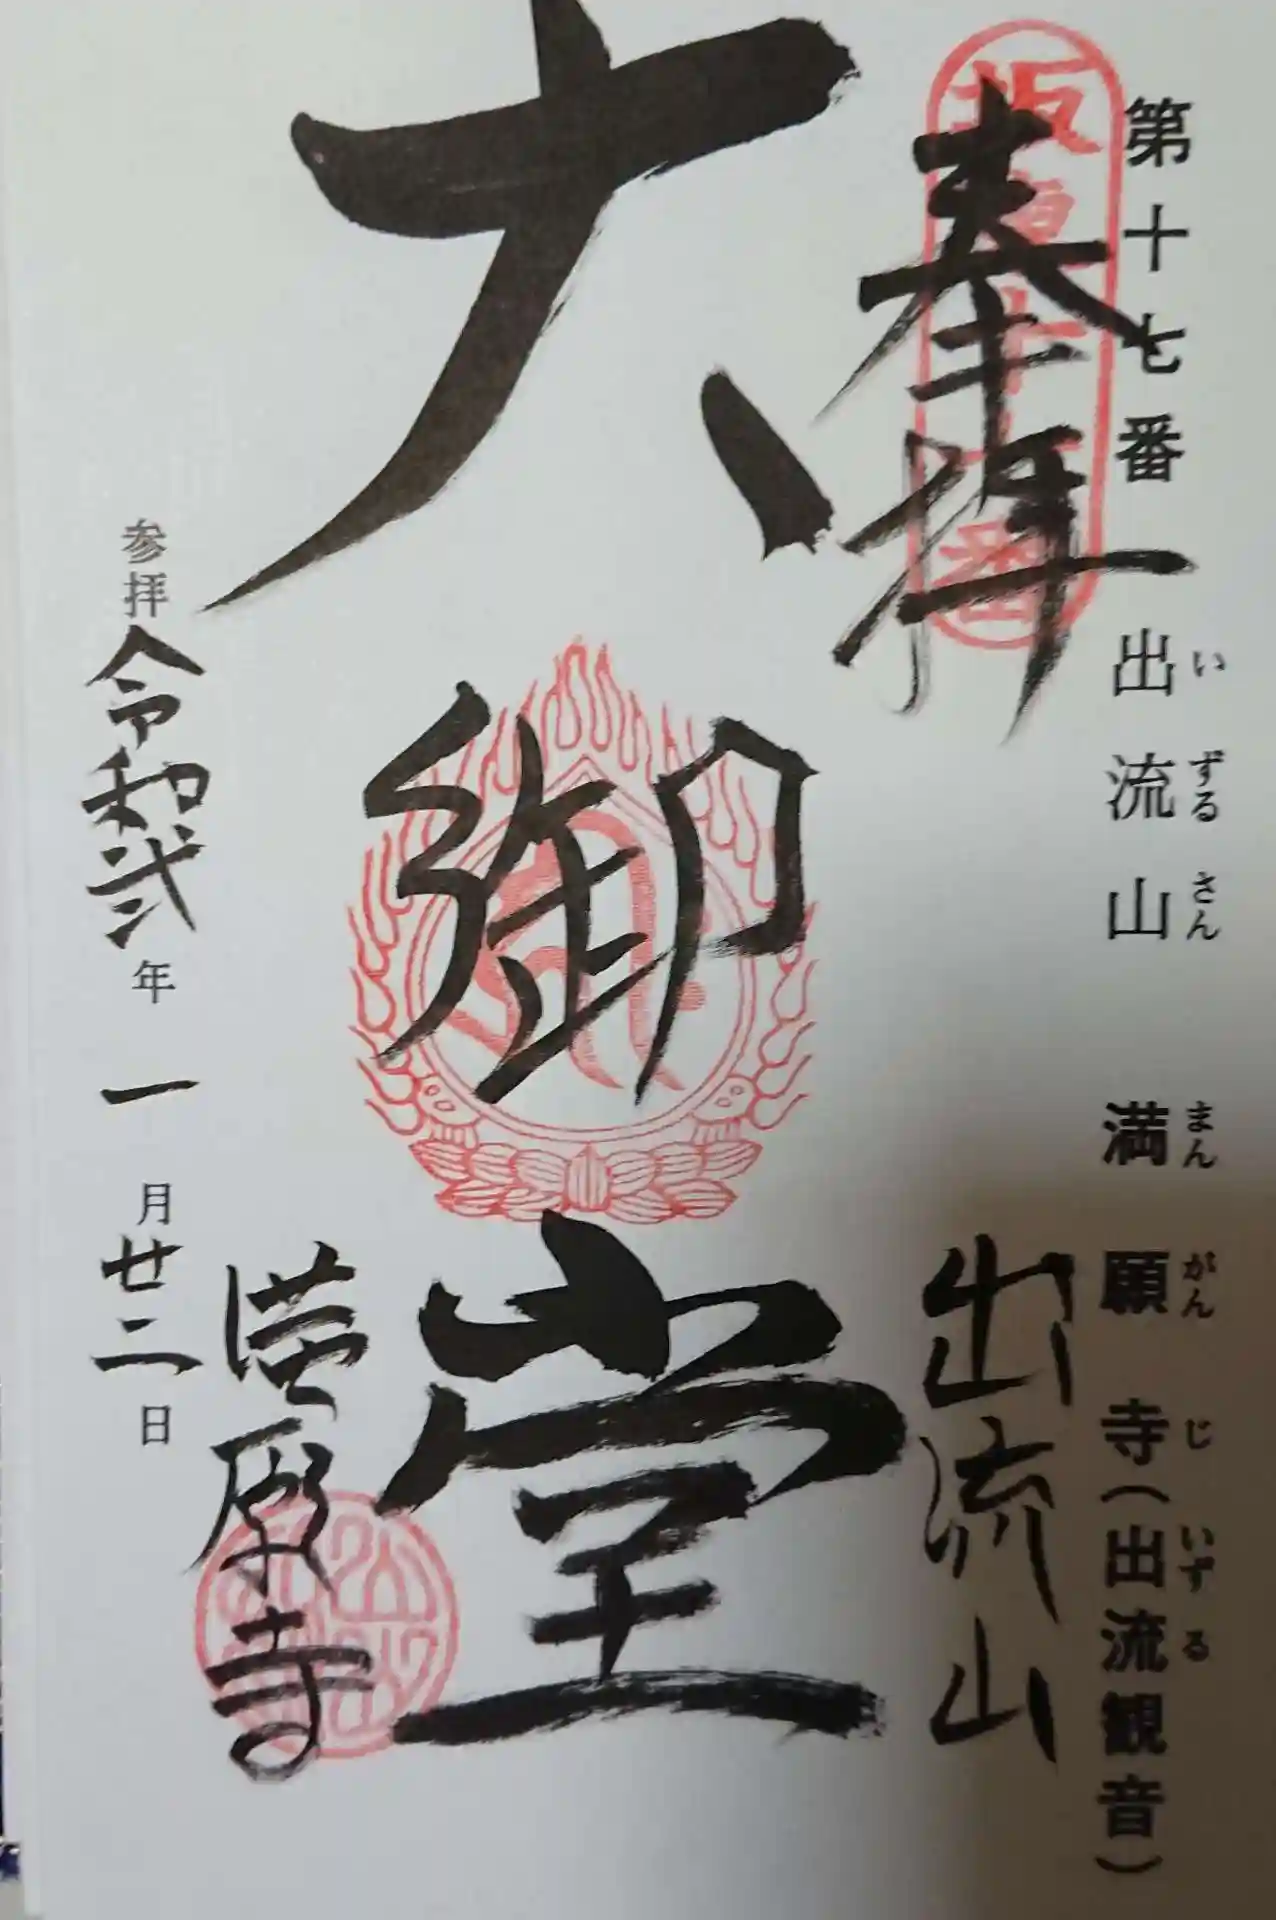 第十七番 出流山 満願寺(出流観音)
いずるさん まんがんじ いずる
坂東十七番
奉拝
出流山
大御堂
満願寺
参拝 令和弐年 一月廿二日